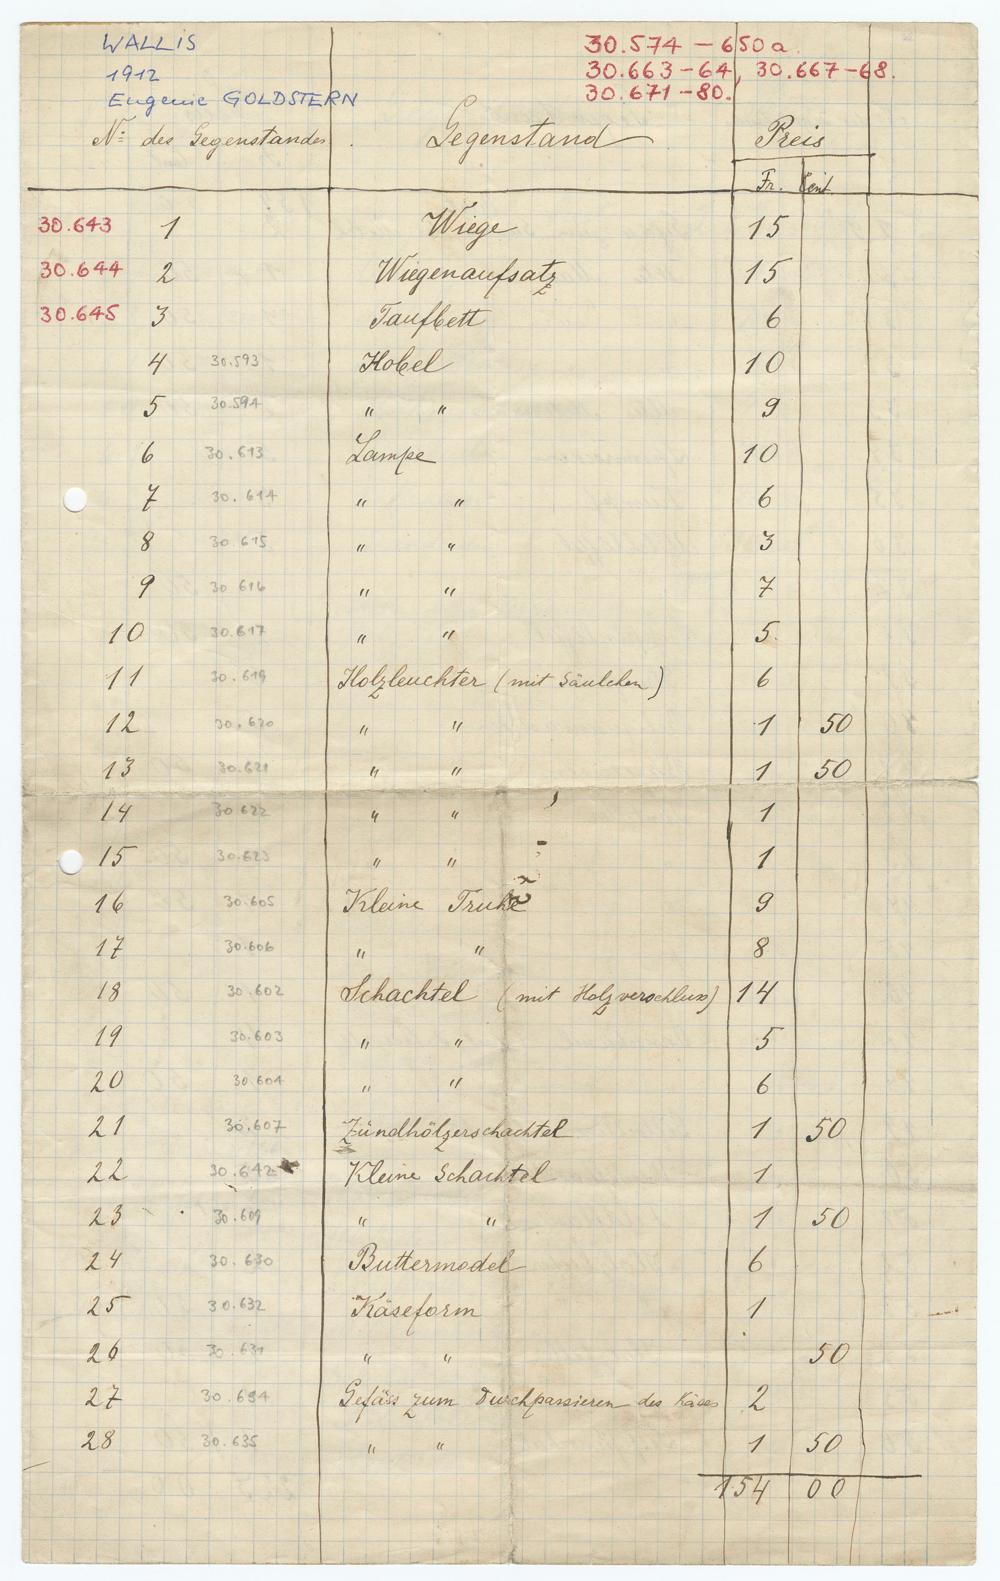 WALLIS
1912
Eugenie GOLDSTERN
30.574 - 650a.
30.663-64, 30.667-68.
30.671-80.
Nº des Gegenstandes Gegenstand Preis
Fr. Cent
30.643 1 Wiege 15
30.644 2 Wiegenaufsatz 15
30.645 3 Taufbett 6
4 30.593 Hobel 10
5 30.594 " " 9
6 30.613 Lampe 10
7 30.614 " " 6
8 30.615 " " 3
9 30 616 " " 7
10 30.617 " " 5.
11 30.619 Holzleuchter (mit Säulchen) 6
12 30.620 " " 1 50
13 30.621 " " 1 50
14 30 622 " " 1
15 30.623 " " 1
16 30.605 Kleine Truhe 9
17 30.606 " " 8
18 30.602 Schachtel (mit Holzverschluss) 14
19 30.603 " " 5
20 30.604 " " 6
21 30.607 Zündhölzerschachtel 1 50
22 30.642 Kleine Schachtel 1
23 30.609 " " 1 50
24 30.630 Buttermodel 6
25 30.632 Käseform 1
26 " " 50
27 Gefäss zum Durchpassieren des Käses 2
28 30.635 " " 1 50
154 00